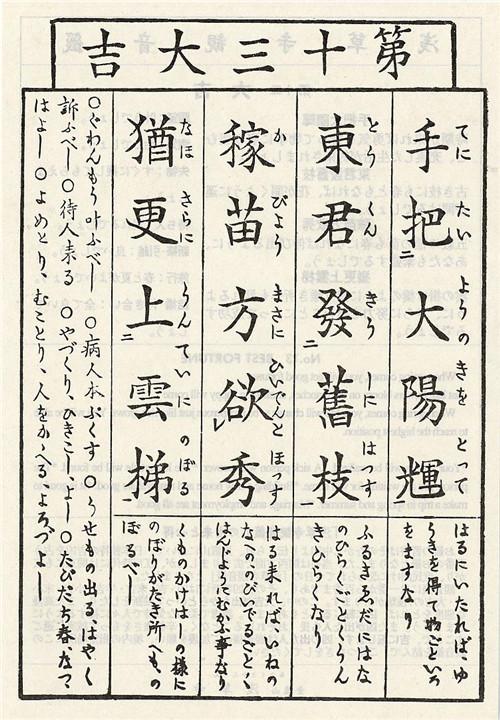 第十三大吉
手把二大陽輝一
てに たい ようの きを とつて
はるにいたればこゆ
うきを得、物ごといろ
をますなり
東君發二舊枝一
とう くん きうしに はつす
ふるきえだにはな
のひらくごとくうん
きひらくなり
稼苗方欲レ秀
か びよう まさに ひいでんと ほつす
はる来れば、いねの
なへののびいでるごとく
はんじようにむかふ事なり
猶更上二雲梯
なほ さらに うんていに のぼる
くものかけはしの様に
のぼりがたき所へもの
ぼるべし
〇ぐわんもう叶ふべし 〇病人本ぶくす 〇うせもの出る、はやく
訴ふべし 〇待人来る 〇やづくり、ひきこしよし 〇たびだち春、なつ
はよし 〇よめとり、むことり、人をかゝへる、よろづよし